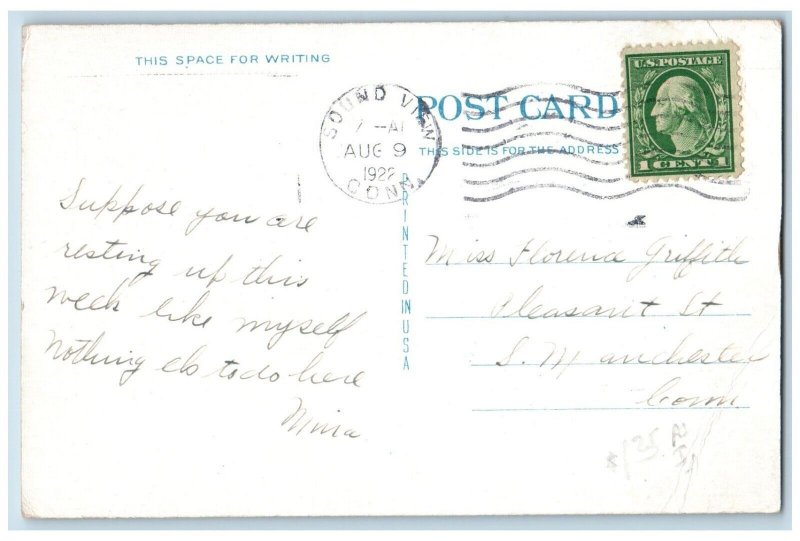 THIS SPACE FOR WRITING
SOUND VIEW
7-AM
AUG 9
1922
CONN.
POST CARD
THIS SIDE IS FOR THE ADDRESS
U.S. POSTAGE
1 CENT 1
PRINTED IN USA
Suppose you are
resting up this
week like myself
Nothing els to do here
Mina
Miss Florence Griffith
Pleasant St
S. Manchester
Conn.